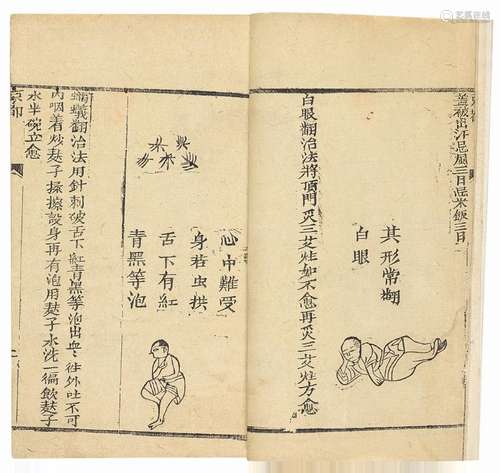 蓋被出汗忌風三日忌米飯三日
其形常翻
白眼
白眼翻治法將頂門灸三艾炷如不愈再灸三艾炷方愈
心中難受
身若虫拱
舌下有紅
青黑等泡
螞蟻翻治法用針刺破舌下紅青黑等泡出血往外吐不可
內咽着炒麸子搽擦設身再有泡用麸子水洗一徧飲麸子
水半碗立愈